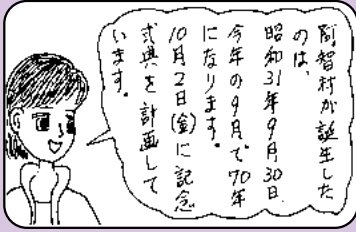 阿智村が誕生した
のは、
昭和31年9月30日
今年の9月で70年
になります。
10月2日(金)に記念
式典を計画して
います。